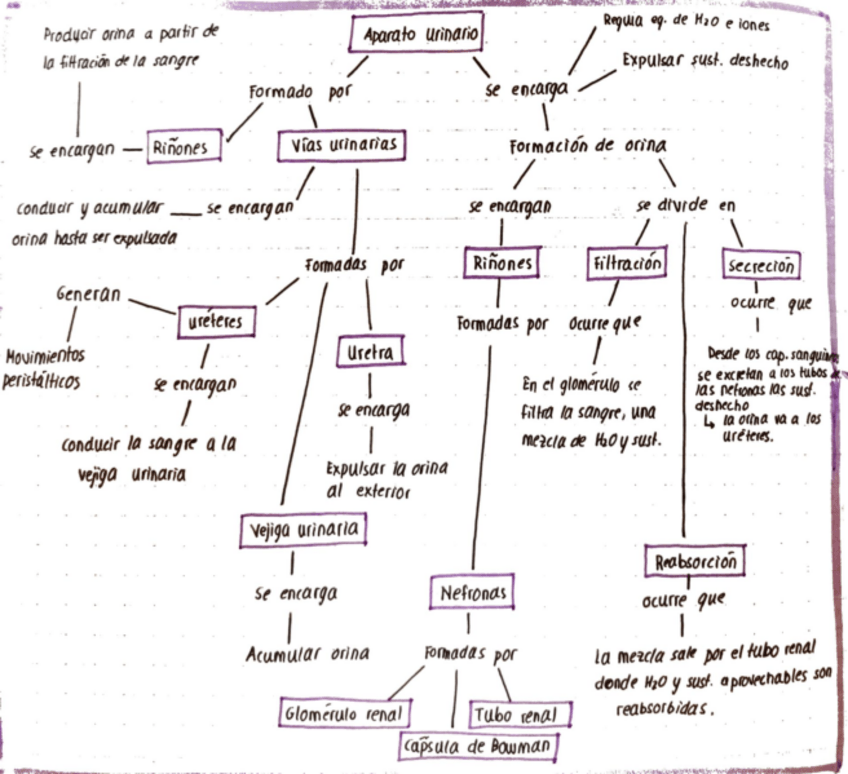 Aparato urinario
Producir orina a partir de
la filtración de la sangre
Formado por
se encargan
Riñones
Vías urinarias
conducir y acumular
orina hasta ser expulsada
se encargan
Formadas por
Generan
Movimientos
peristálticos
uréteres
se encargan
conducir la sangre a la
vejiga urinaria
Uretra
se encarga
Expulsar la orina
al exterior
Vejiga urinaria
se encarga
Acumular orina
se encarga
Regula eq. de H2O e iones
Expulsar sust. deshecho
Formación de orina
se encargan
Riñones
Formadas por
Nefronas
Formadas por
Glomérulo renal
Cápsula de Bowman
Tubo renal
se divide en
Filtración
ocurre que
En el glomérulo se
filtra la sangre, una
mezcla de H2O y sust.
Reabsorción
ocurre que
La mezcla sale por el tubo renal
donde H2O y sust. aprovechables son
reabsorbidas.
secreción
ocurre que
Desde los cap. sanguíneos
se excretan a los tubos de
las nefronas las sust.
deshecho
↳ la orina va a los
uréteres.